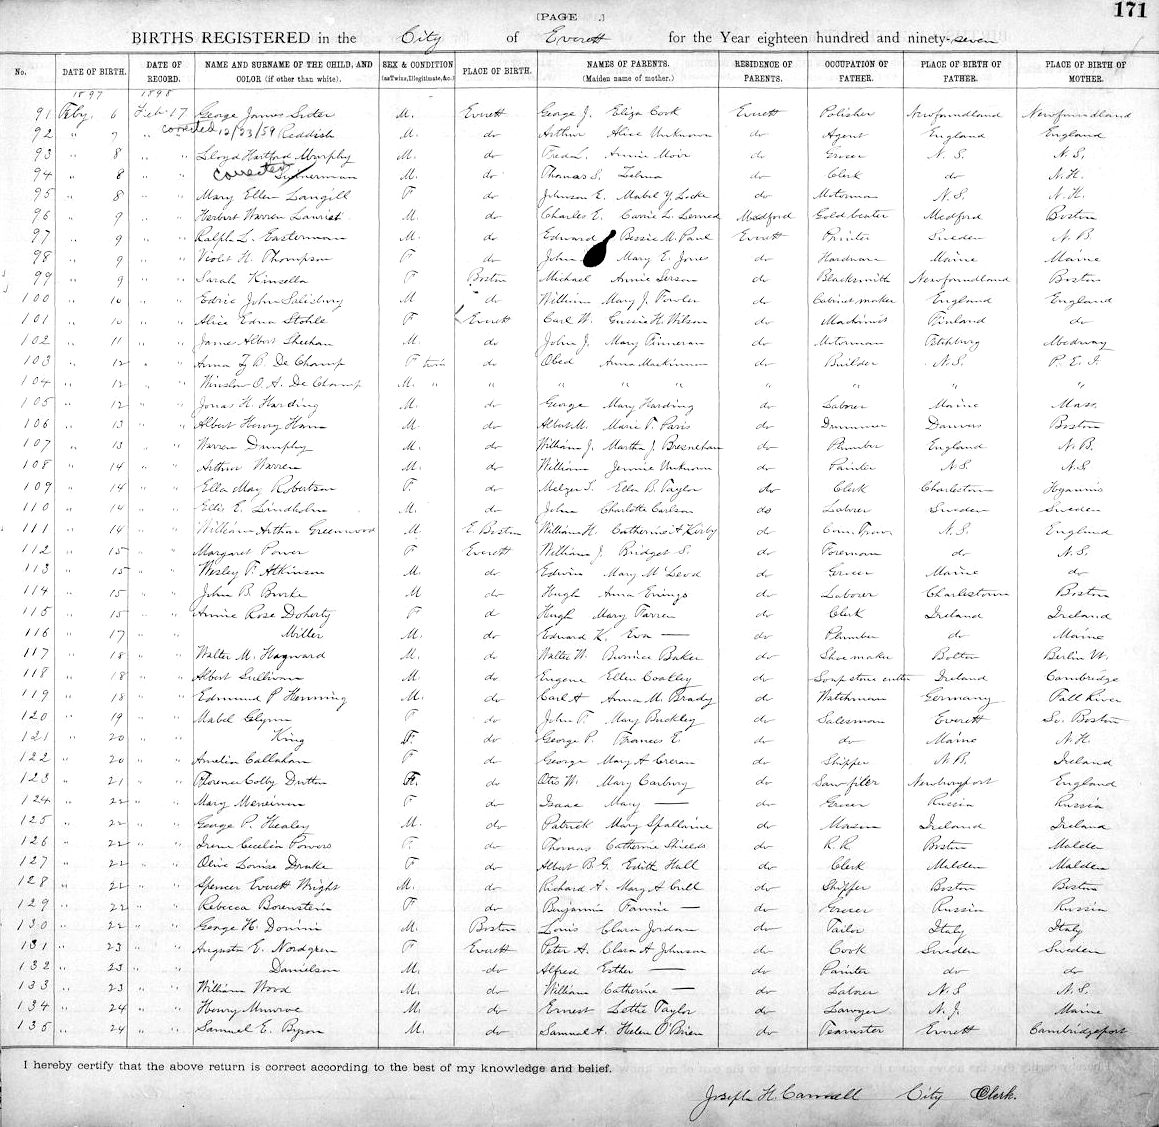 171
[PAGE .]
BIRTHS REGISTERED in the City of Everett for the Year eighteen hundred and ninety-seven
No. DATE OF BIRTH. DATE OF RECORD. NAME AND SURNAME OF THE CHILD, AND COLOR (if other than white). SEX & CONDITION (as Twins, Illegitimate, &c.) PLACE OF BIRTH. NAMES OF PARENTS. (Maiden name of mother.) RESIDENCE OF PARENTS. OCCUPATION OF FATHER. PLACE OF BIRTH OF FATHER. PLACE OF BIRTH OF MOTHER.
1897 1898
91 Feby. 6 Feb 17 George James M. Everett George J. Eliza Cook Everett Polisher Newfoundland Newfoundland
corrected 10/23/59
92 " 7 " " Reddish M. do Arthur Alice Unknown do Agent England England
93 " 8 " " Lloyd Hartford Murphy M. do Fred L. Annie Moir do Grocer N. S. N. S.
corrected
94 " 8 " " M. do Thomas S. Selma do Clerk do N. H.
95 " 8 " " Mary Ellen Langill F do Johnson E. Mabel Y. Locke do Motorman N. S. N. H.
96 " 9 " " Herbert Warren Lauriat M. do Charles E. Carrie L. Lerned Medford Goldbeater Medford Boston
97 " 9 " " Ralph L. Easterman M. do Edward Bessie M. Paul Everett Painter Sweden N. B.
98 " 9 " " Violet H. Thompson F do John Mary E. Jones do Hardware Maine Maine
99 " 9 " " Sarah Kinsella F Boston Michael Annie do Blacksmith Newfoundland Boston
100 " 10 " " Edric John Salisbury M do William Mary J. Fowler do Cabinet maker England England
101 " 10 " " Alice Edna Stohle F Everett Carl W. Gussie H. Wilson do Machinist Finland do
102 " 11 " " James Albert Sheehan M. do John J. Mary Finneran do Motorman Fitchburg Medway
103 " 12 " " Anna B. De Champ F twin do Obed Anna Mackinnon do Builder N. S. P. E. I.
104 " 12 " " Winslow O. A. De Champ M. " " " " " " " " "
105 " 12 " " Jonas H. Harding M. do George Mary Harding do Laborer Maine Mass.
106 " 13 " " Albert Henry Ham M. do Albert M. Marie V. Paris do Drummer Danvers Boston
107 " 13 " " Warren Dunphy M. do William J. Martha J. Bresnehan do Plumber England N. B.
108 " 14 " " Arthur Warren M. do William Jennie Unknown do Painter N.S. N.S
109 " 14 " " Ella May Robertson F. do Melzer S. Ella B. Taylor do Clerk Charlestown Hyannis
110 " 14 " " Ellis E. Lindholm M. do John Charlotte Carlson do Laborer Sweden Sweden
111 " 14 " " William Arthur Greenwood M E. Boston William H. Catherine A Kirby do Com. Trav. N.S. England
112 " 15 " " Margaret Power F Everett William J. Bridget S. do Foreman do N.S.
113 " 15 " " Wesley F. Atkinson M. do Edwin Mary McLeod do Grocer Maine do
114 " 15 " " John B. M do Hugh Anna do Laborer Charlestown Boston
115 " 15 " " Annie Rose Doherty F d Hugh Mary Farren do Clerk Ireland Ireland
116 " 17 " " Miller M. do Edward K. Eva — do Plumber do Maine
117 " 18 " " Walter M. Hayward M. do Walter W. Bernice Baker do Shoemaker Bolton Berlin
118 " 18 " " Albert Sullivan M do Eugene Ellen Coatley do Soap stone cutter Ireland Cambridge
119 " 18 " " Edmund P Henning M. do Carl A Anna M. Brady do Watchman Germany Fall River
120 " 19 " " Mabel Glynn F do John F. Mary Buckley do Salesman Everett So. Boston
121 " 20 " King F. do George P. Frances E. do do Maine N.H.
122 " 20 " " Amelia Callahan F do George Mary A Crean do Shipper N.B. Ireland
123 " 21 " " Florence Colby Dutton F. do Otis W. Mary Carbury do Saw-filer Newburyport England
124 " 22 " " Mary F do Isaac Mary — do Grocer Russia Russia
125 " 22 " " George P. Healey M. do Patrick Mary Spallaine do Mason Ireland Ireland
126 " 22 " " Irene Cecelia Powers F. do Thomas Catherine Shields do R.R. Boston Malden
127 " 22 " " Olive Louise Drake F do Albert B. G. Edith Hall do Clerk Malden Malden
128 " 22 " " Spencer Everett Wright M. do Richard A. Mary A Cull do Shipper Boston Boston
129 " 22 " " Rebecca Borenstein F do Benjamin Fannie — do Grocer Russia Russia
130 " 22 " " George H. M. Boston Louis Clara Jordan do Tailor Italy Italy
131 " 23 " " Augusta E. Nordgren F Everett Peter A. Clara A Johnson do Cook Sweden Sweden
132 " 23 " " Danielson M. do Alfred Esther — do Painter do do
133 " 23 " " William Wood M. do William Catherine — do Laborer N.S N.S.
134 " 24 " " Henry Munroe M. do Ernest Lettie Taylor do Lawyer N.J. Maine
135 " 24 " " Samuel E. Byron M. do Samuel A. Helen O'Brien do Teamster Everett Cambridgeport
I hereby certify that the above return is correct according to the best of my knowledge and belief.
Joseph H. Cannell City Clerk.